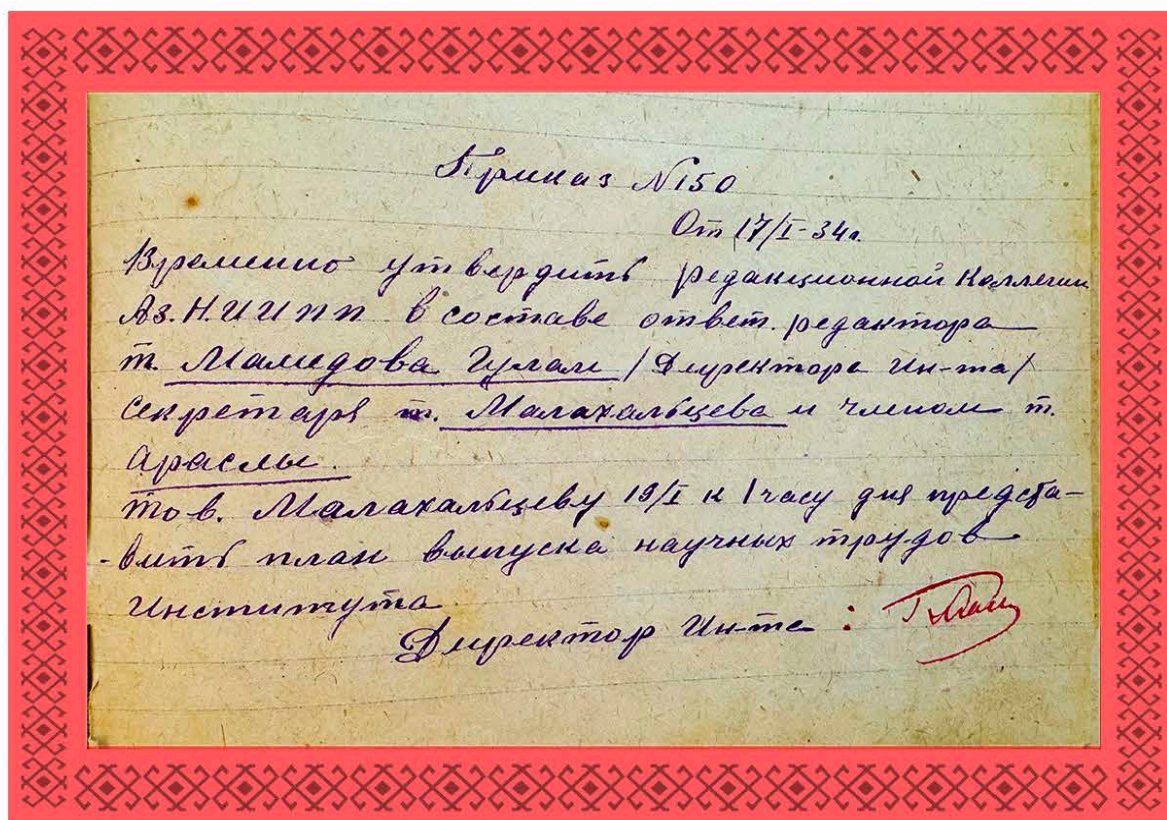 Приказ №150
От 17/I-34г.
Временно утвердить редакционной Коллегии
Аз.Н.ИИПП в составе ответ. редактора
т. Мамедова Гулам /Директора Ин-та/
Секретаря т. Малахальцева и членом т.
Араслы.
тов. Малахальцеву 19/I к 1 часу дня предста-
-вить план выпуска научных трудов
Института.
Директор Ин-та :